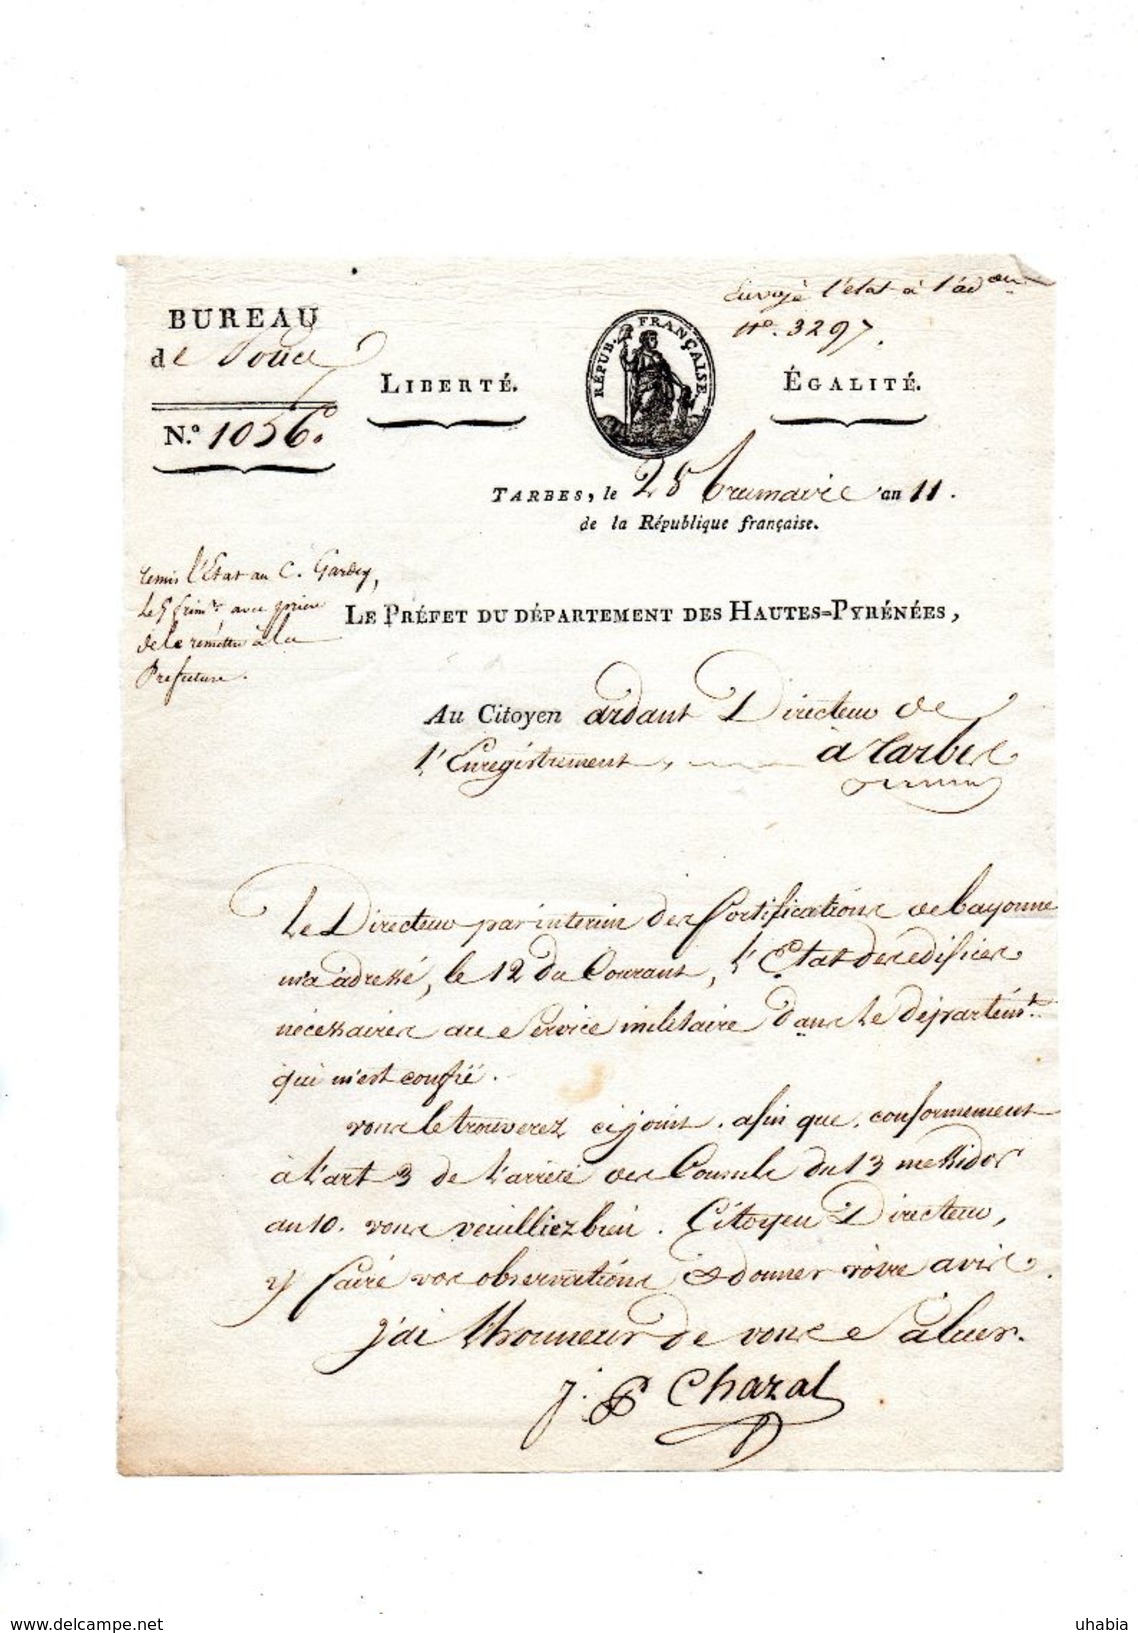 BUREAU
de
N.° 1056.
Envoyé l'état à l'ad.on
N°. 3297.
LIBERTÉ.
RÉPUB. FRANÇAISE.
ÉGALITÉ.
TARBES, le 28 brumaire an 11.
de la République française.
remis l'Etat au C. Gardey,
Le 5 frim.re avec prière
de le remettre à la
Prefecture.
LE PRÉFET DU DÉPARTEMENT DES HAUTES=PYRÉNÉES,
Au Citoyen ardant Directeur de
l'Enregistrement, à Tarbes
Le Directeur par interim des fortifications de bayonne
m'a adressé, le 12 du Courant, l'Etat des edifices
nécessaires au Service militaire dans le départem.t
qui m'est confié.
vous le trouverez ci joint. afin que, conformement
à l'art 3 de l'arrêté des Consuls du 13 messidor
an 10. vous veuilliez bien. Citoyen Directeur,
y faire vos observations & donner vôtre avis.
J'ai l'honneur de vous Saluer.
J. P Chazal
www.delcampe.net
uhabia